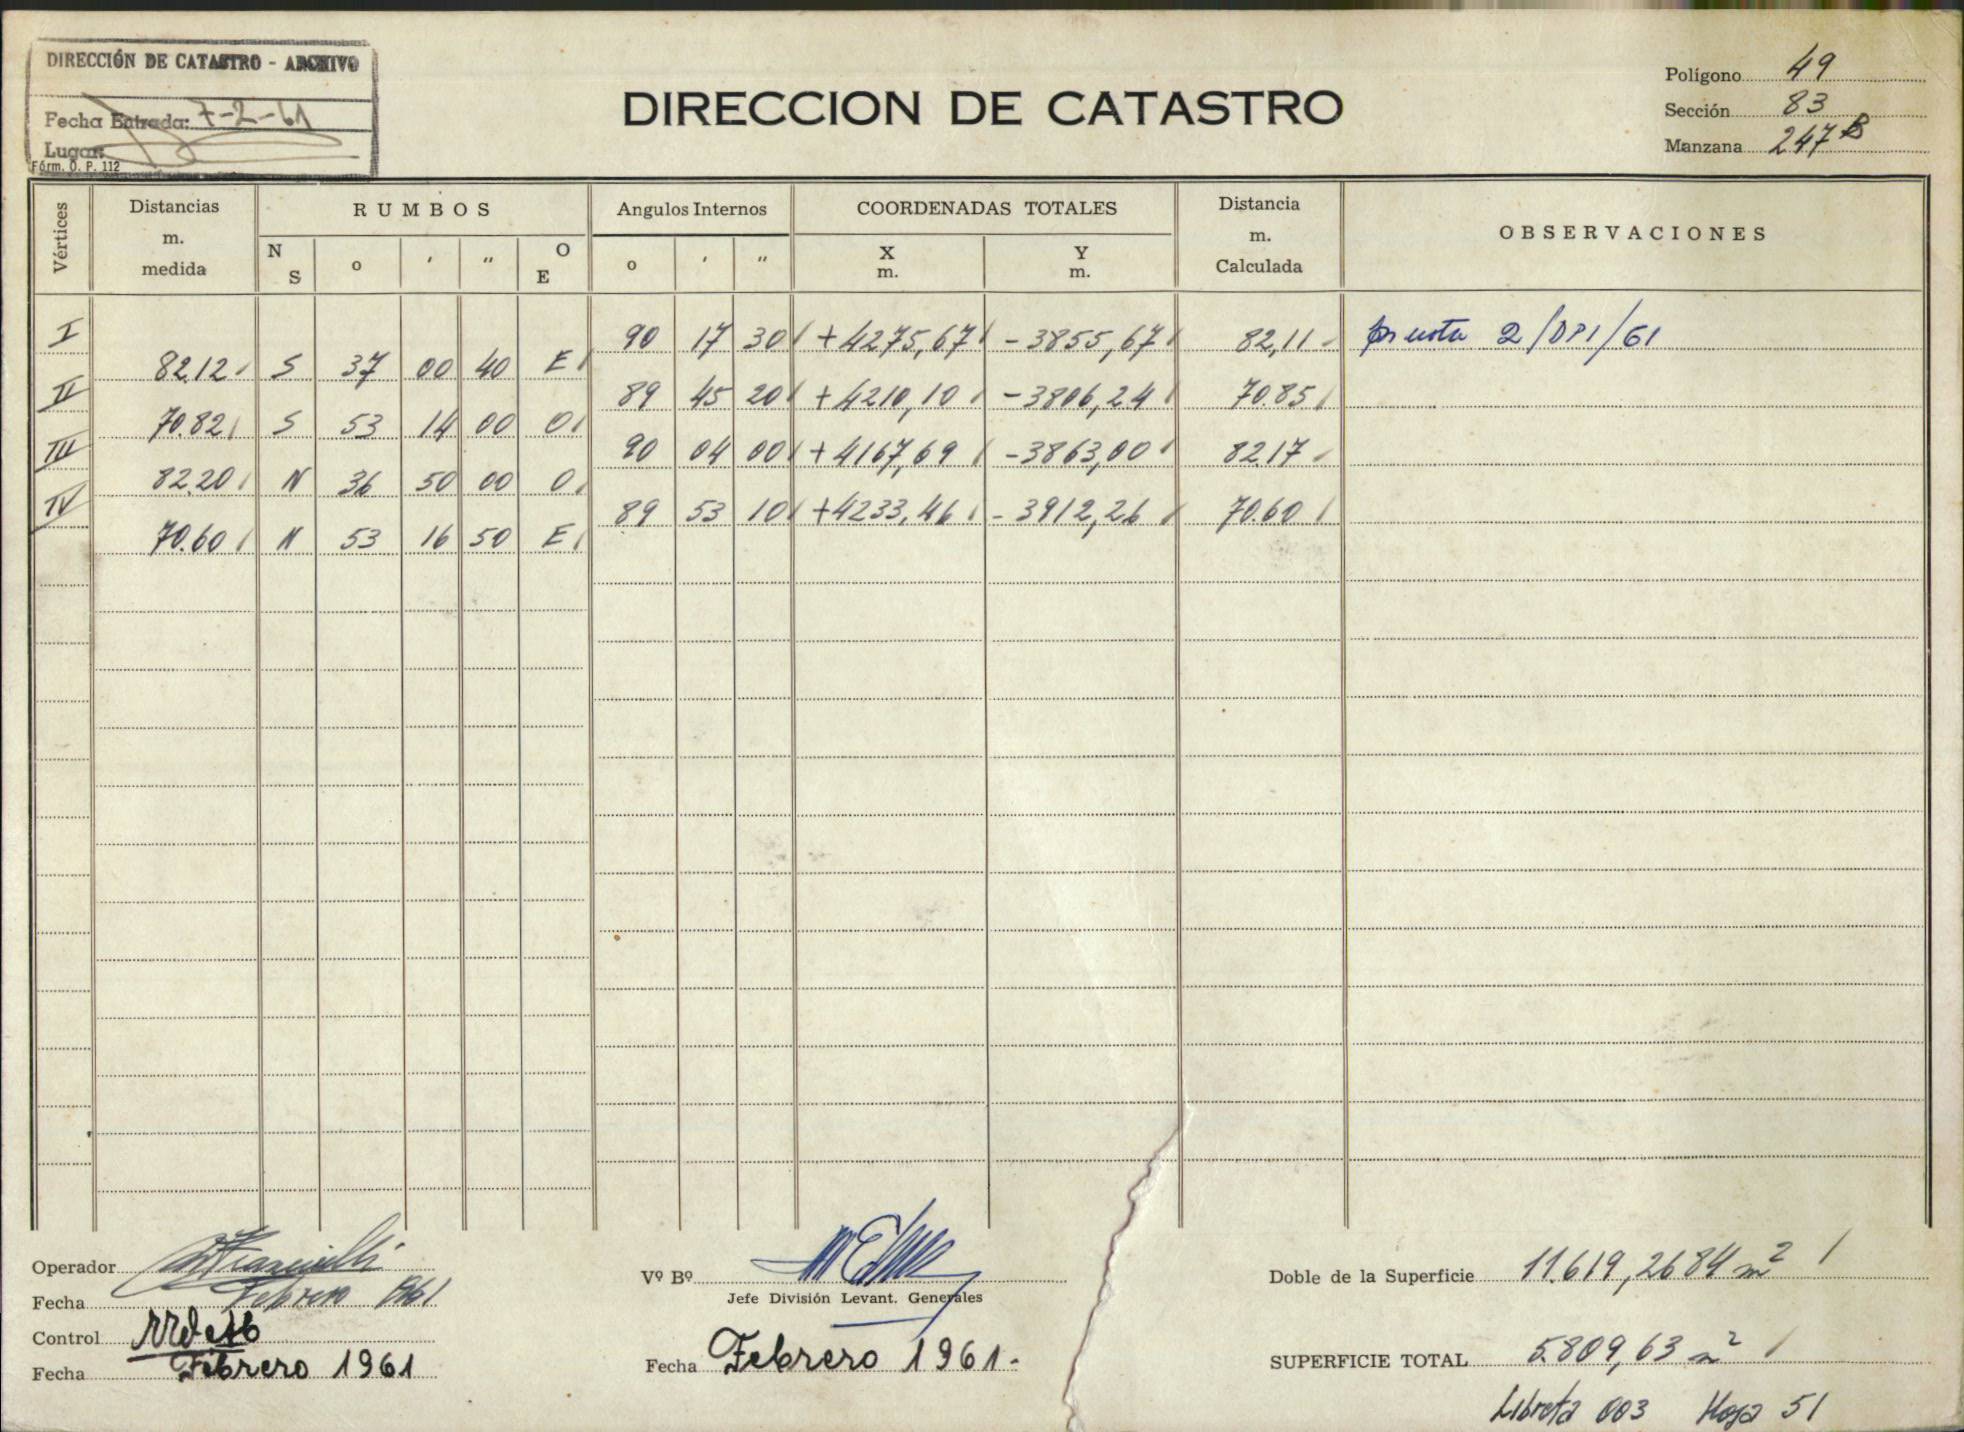 DIRECCIÓN DE CATASTRO - ARCHIVO
Fecha Entrada: 7-2-61
Lugar:
Fórm. O. P. 112
DIRECCION DE CATASTRO
Polígono 49
Sección 83
Manzana 247 B
Vértices Distancias m. medida RUMBOS Angulos Internos COORDENADAS TOTALES Distancia m. Calculada OBSERVACIONES
N S o ' " O E o ' " X m. Y m.
I 90 17 30 +4275,67 -3855,67 82,11 2/DPI/61
82.12 S 37 00 40 E
II 89 45 20 +4210,10 -3806,24 70.85
70.82 S 53 14 00 O
III 90 04 00 +4167,69 -3863,00 82.17
82.20 N 36 50 00 O
IV 89 53 10 +4233,46 -3912,26 70.60
70.60 N 53 16 50 E
Operador
Fecha Febrero 1961
Control
Fecha Febrero 1961
Vº Bº
Jefe División Levant. Generales
Fecha Febrero 1961.-
Doble de la Superficie 11.619,2684 m²
SUPERFICIE TOTAL 5.809,63 m²
Libreta 003 Hoja 51